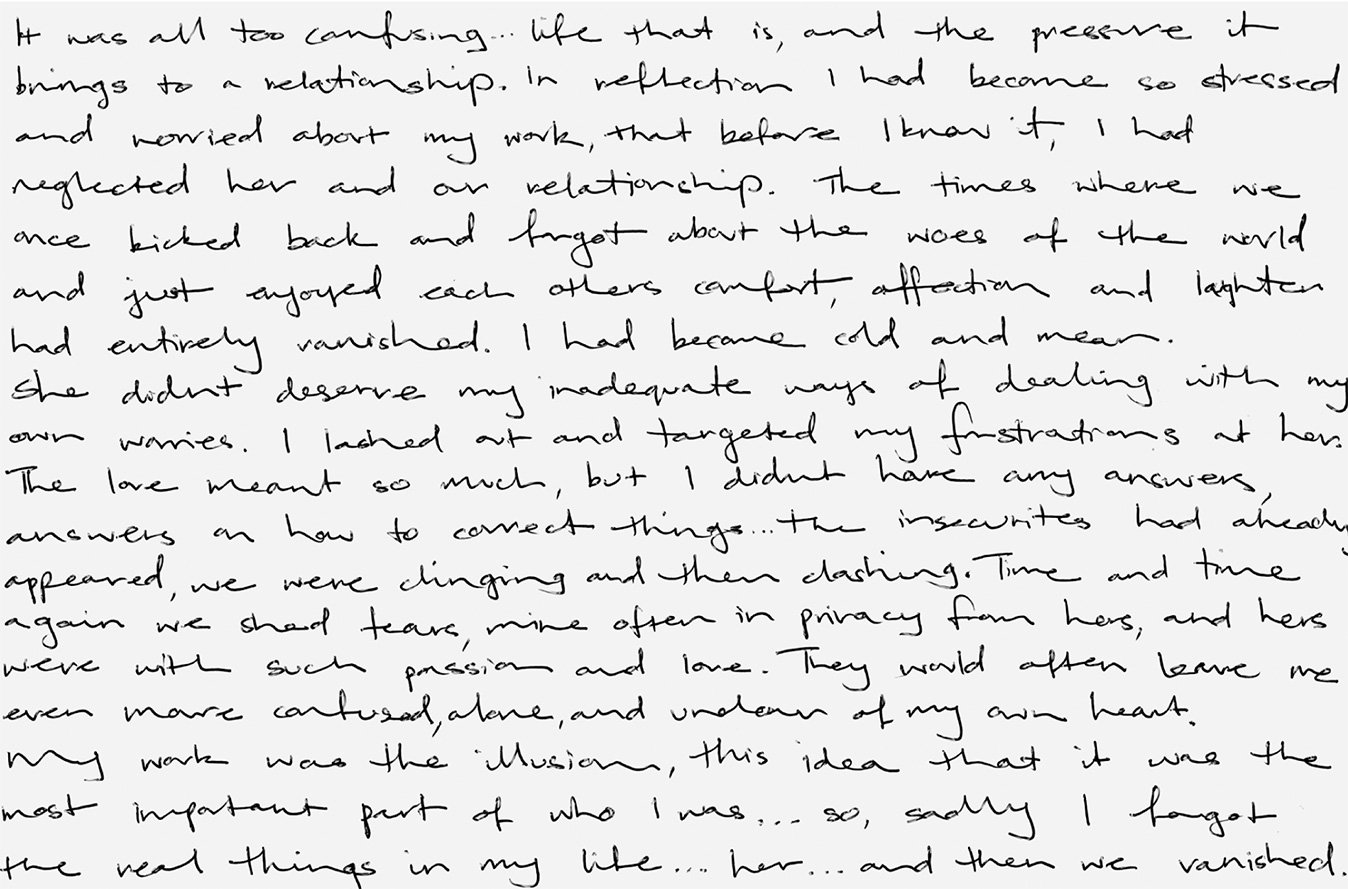 It was all too confusing... life that is, and the pressure it
brings to a relationship. In reflection I had become so stressed
and worried about my work, that before I know it, I had
neglected her and our relationship. The times where we
once kicked back and forgot about the woes of the world
and just enjoyed each others comfort, affection and laghter
had entirely vanished. I had become cold and mean.
She didnt deserve my inadequate ways of dealing with my
own worries. I lashed out and targeted my frustrations at her.
The love meant so much, but I didnt have any answers,
answers on how to correct things... the insecurites had already
appeared, we were clinging and then clashing. Time and time
again we shed tears, mine often in privacy from hers, and hers
were with such passion and love. They would often leave me
even more confused, alone, and unclear of my own heart.
My work was the illusion, this idea that it was the
most important part of who I was... so, sadly I forgot
the real things in my life... her... and then we vanished.